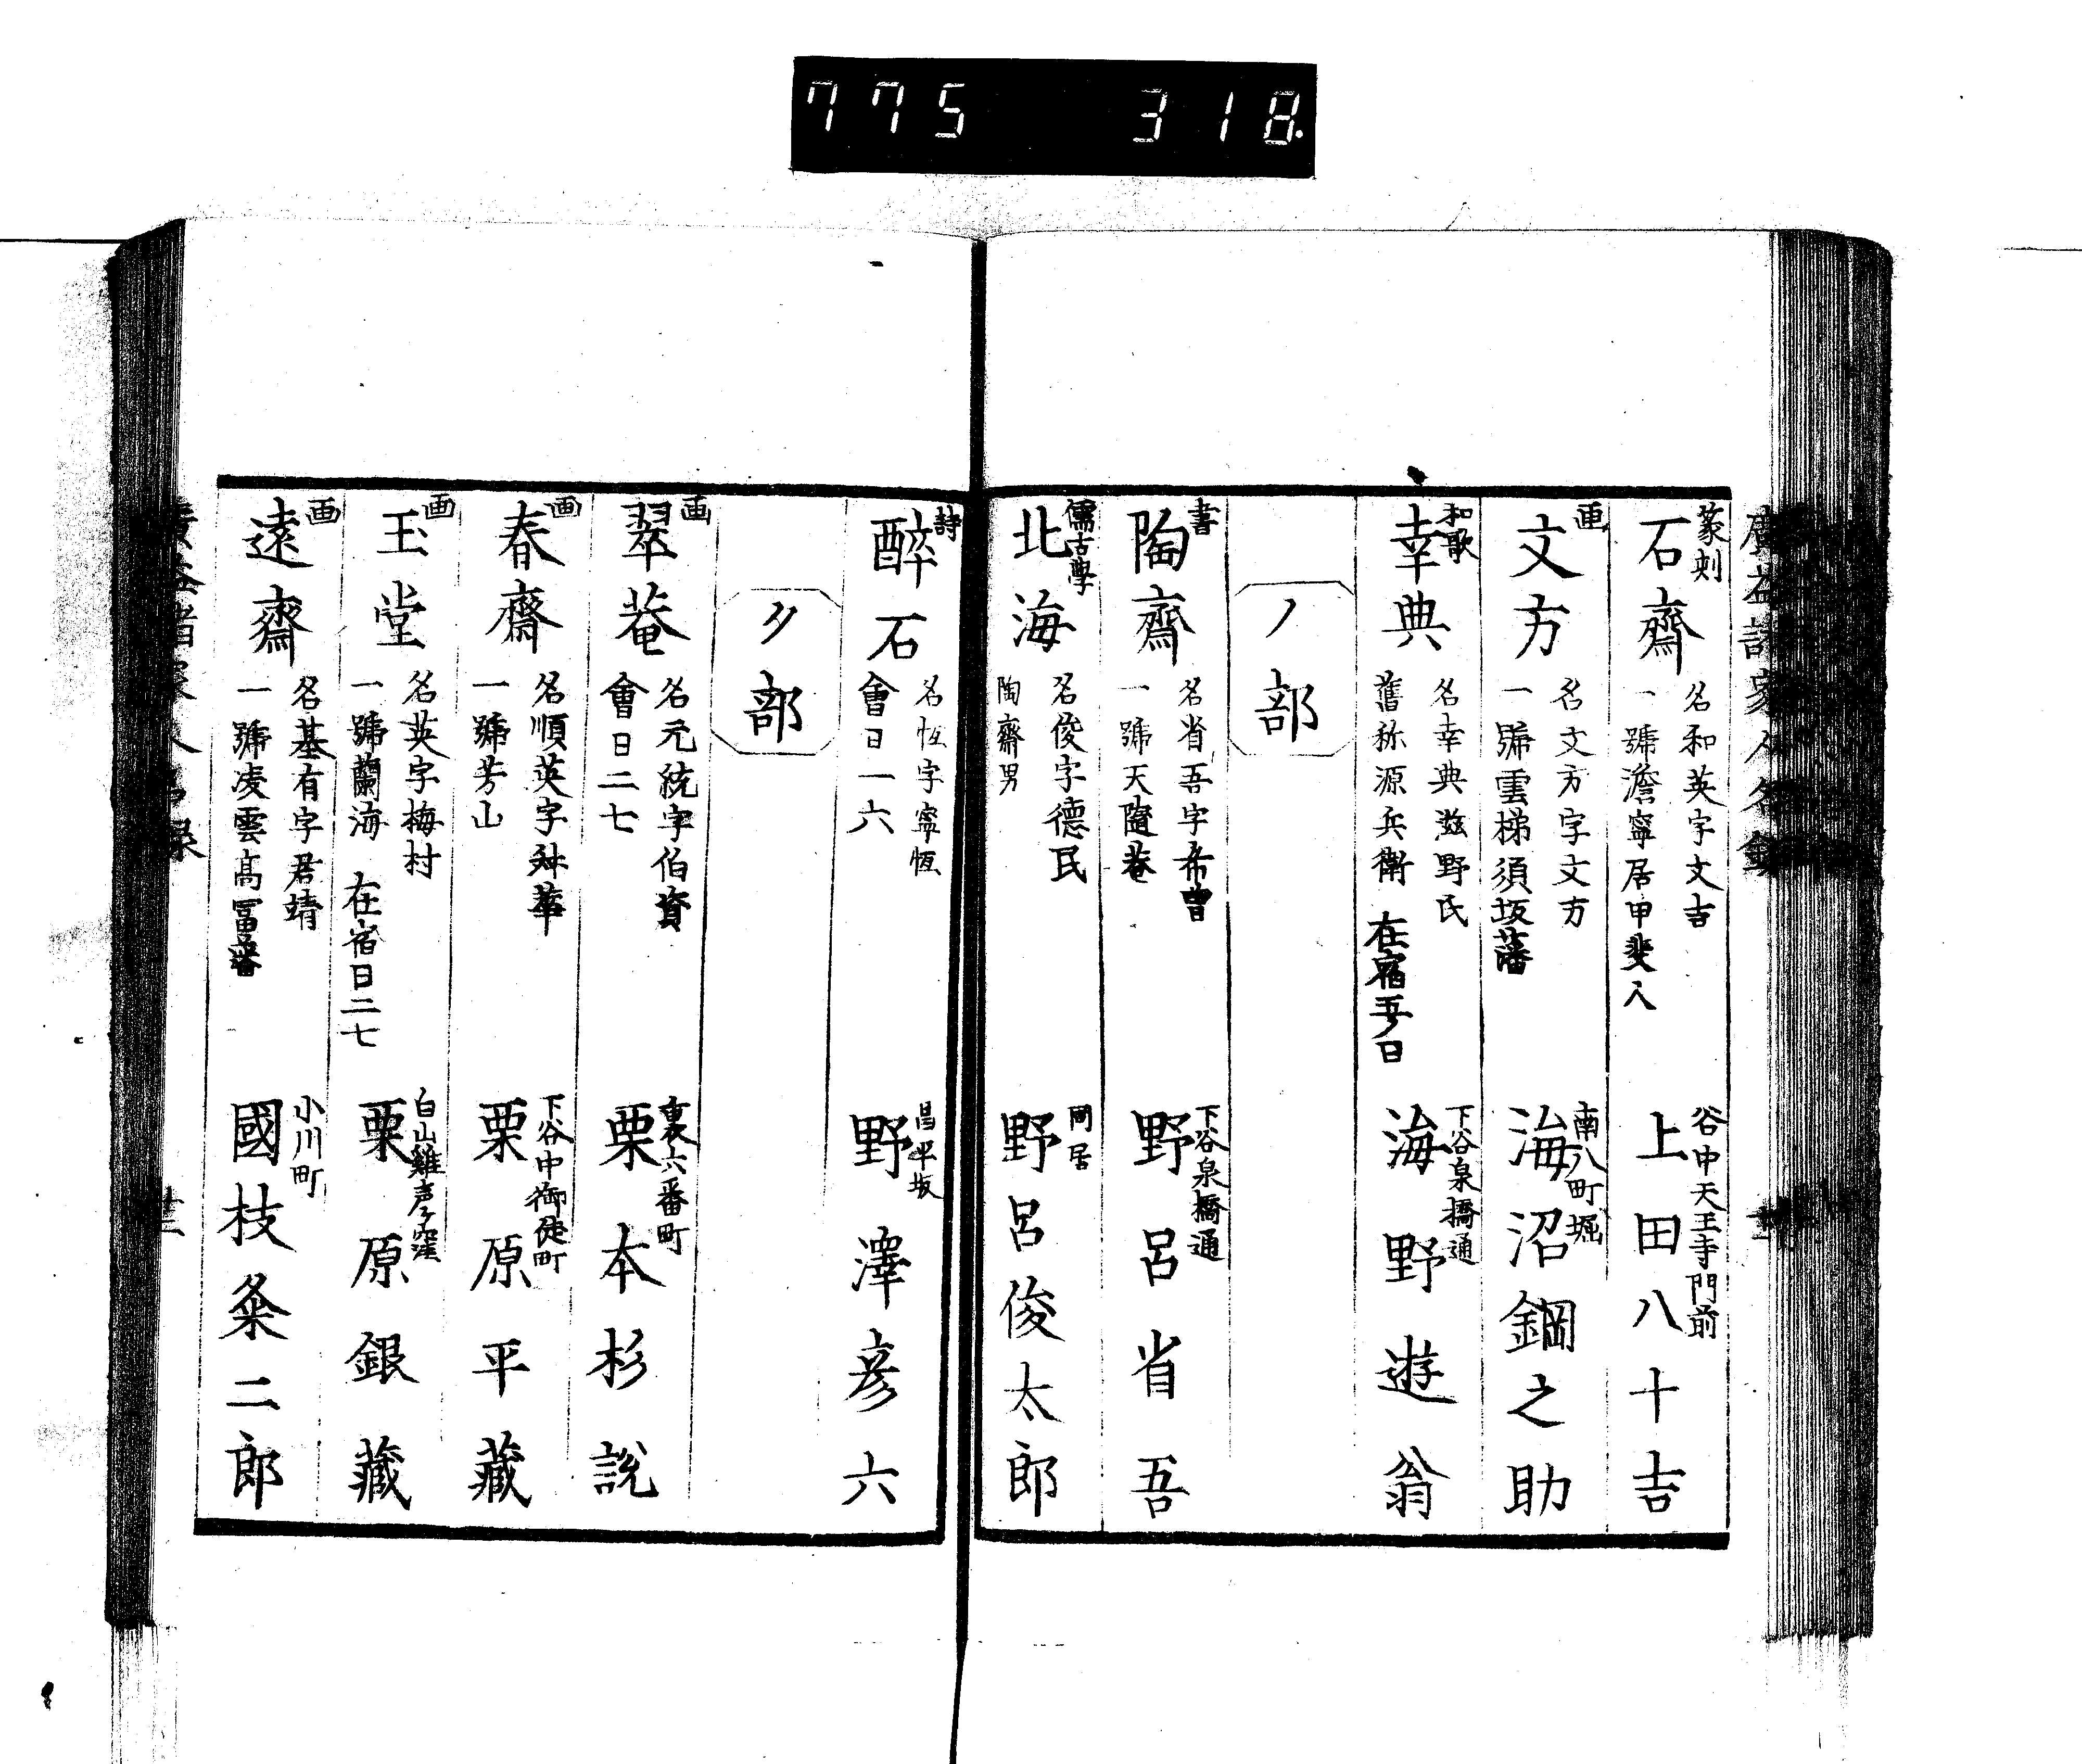 775 318
廣益諸家人名録
篆刻
石齋
名和英字文吉
一號澹寧居甲斐人
谷中天王寺門前
上田八十吉
画
文方
名文方字文方
一號雲梯須坂藩
南八町堀
海沼鋼之助
和歌
幸典
名幸典滋野氏
舊称源兵衛 在宿五ノ日
下谷泉橋通
海野遊翁
ノ部
書
陶齋
名省吾字希曽
一號天隨菴
下谷泉橋通
野呂省吾
儒古學
北海
名俊字德民
陶齋男
同居
野呂俊太郎
詩
醉石
名恆字寧恆
會日一六
昌平坂
野澤彦六
ク部
画
翠菴
名元統字伯資
會日二七
裏六番町
栗本杉説
画
春齋
名順英字舜華
一號芳山
下谷中御徒町
栗原平藏
画
玉堂
名英字梅村
一號蘭海 在宿日二七
白山雞声ヶ窪
栗原銀藏
画
遠齋
名基有字君靖
一號凌雲高冨藩
小川町
國枝粂二郎
廣益諸家人名録